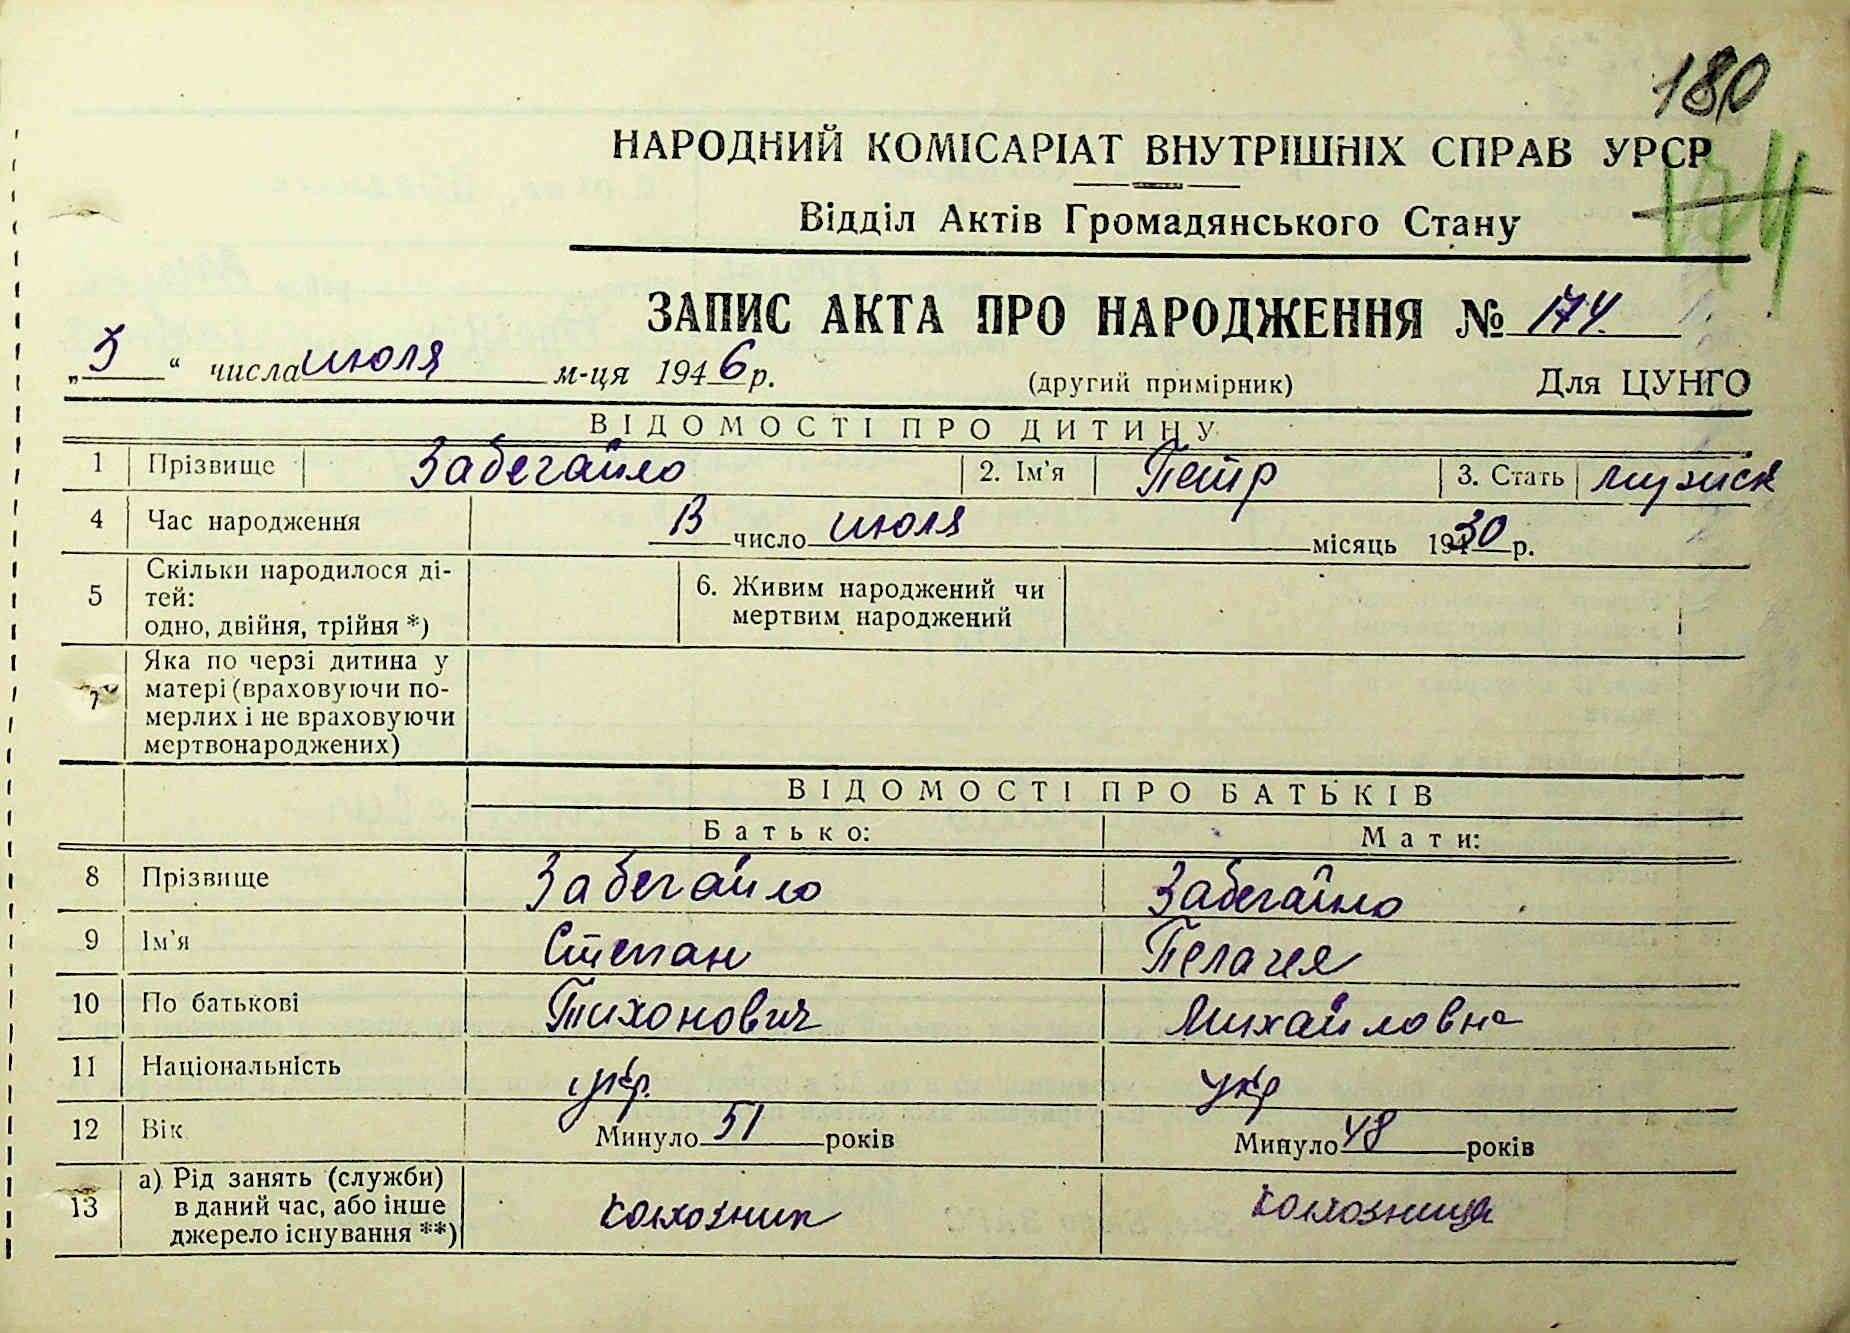 180
НАРОДНИЙ КОМІСАРІАТ ВНУТРІШНІХ СПРАВ УРСР
174
Відділ Актів Громадянського Стану
ЗАПИС АКТА ПРО НАРОДЖЕННЯ № 174.
„3“ числа июля м-ця 1946 р. (другий примірник) Для ЦУНГО
ВІДОМОСТІ ПРО ДИТИНУ
1 Прізвище Забегайло 2. Ім'я Петр 3. Стать мужск
4 Час народження 13 число июля місяць 1930 р.
5 Скільки народилося ді-
тей:
одно, двійня, трійня *)
6. Живим народжений чи
мертвим народжений
7 Яка по черзі дитина у
матері (враховуючи по-
мерлих і не враховуючи
мертвонароджених)
ВІДОМОСТІ ПРО БАТЬКІВ
Батько: Мати:
8 Прізвище Забегайло Забегайло
9 Ім'я Степан Пелагея
10 По батькові Тихонович Михайловна
11 Національність укр. укр
12 Вік Минуло 51 років Минуло 48 років
13 а) Рід занять (служби)
в даний час, або інше
джерело існування **)
колхозник колхозница